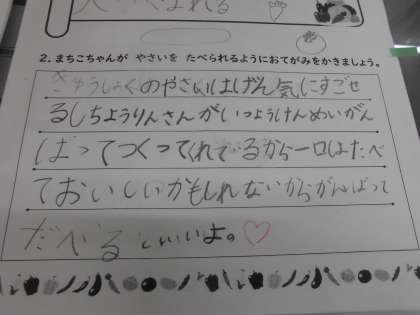 2. まちこちゃんが やさいを たべられるようにおてがみをかきましょう。
きゅうしょくのやさいはげん気にすごせ
るしちょうりんさんがいっしょうけんめいがん
ばってつくってくれているから一口はたべ
ておいしいかもしれないからがんばって
たべるといいよ。♡